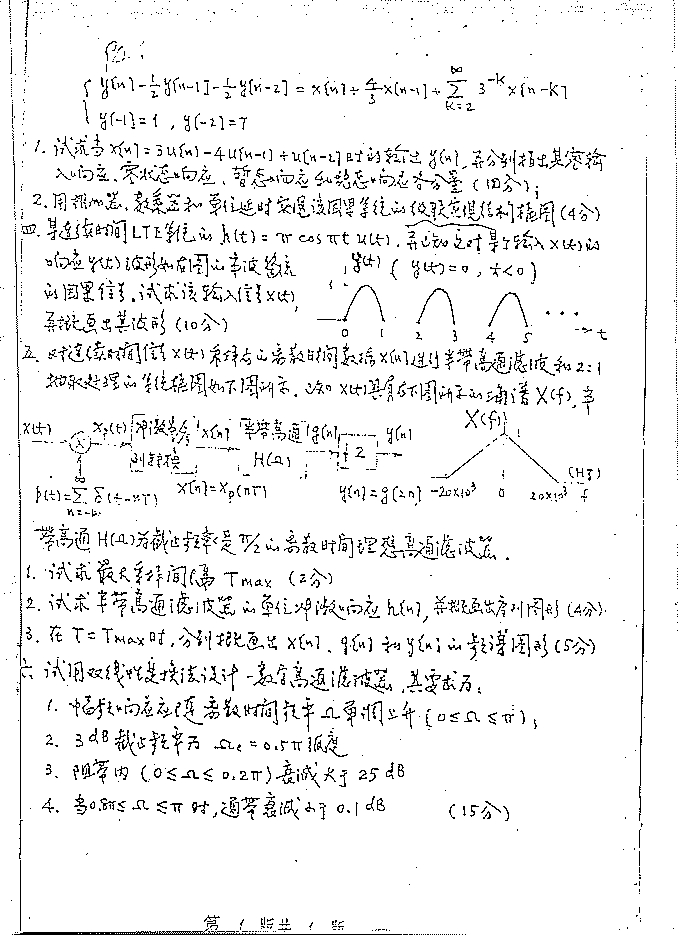 y[n] - 1/2 y[n-1] - 1/2 y[n-2] = x[n] + 4/3 x[n-1] + ∑_{k=2}^{∞} 3^{-k} x[n-k]
y[-1]=1, y[-2]=7
1. 试求当x[n]=3u[n]-4u[n-1]+u[n-2]时的输出y[n],并分别指出其零输
入响应、零状态响应、暂态响应和稳态响应各分量(10分);
2. 用相加器、数乘器和单位延时实现该因果系统的级联实现结构框图(4分)
四. 某连续时间LTI系统的h(t)=π cos πt u(t), 并已知它对某个输入x(t)的
响应y(t)波形如右图的半波整流
的因果信号, 试求该输入信号x(t),
并概画出其波形(10分)
y(t) ( y(t)=0, t<0 )
0 1 2 3 4 5 ... t
五. 对连续时间信号x(t)采样与的离散时间数据x[n]进行半带高通滤波和2:1
抽取处理的系统框图如下图所示. 已知x(t)具有如下图所示的三角谱X(f), 半
x(t) x_p(t) 冲激串 x[n] 半带高通 g[n] y[n] X(f)
到 转换 H(Ω) ↓2 1
p(t)=∑ δ(t-nT) x[n]=x_p(nT) y[n]=g[2n] -20×10³ 0 20×10³ f (Hz)
带高通H(Ω)为截止频率是π/2的离散时间理想高通滤波器.
1. 试求最大采样间隔 Tmax (2分)
2. 试求半带高通滤波器的单位冲激响应h[n], 并概画出序列图形(4分).
3. 在T=Tmax时, 分别概画出x[n]、g[n]和y[n]的频谱图形(5分)
六 试用双线性变换法设计一数字高通滤波器, 其要求为:
1. 幅频响应应随离散时间频率Ω单调上升(0≤Ω≤π);
2. 3dB截止频率为 Ωc=0.5π弧度
3. 阻带内(0≤Ω≤0.2π)衰减大于25dB
4. 当0.8π≤Ω≤π时, 通带衰减小于0.1dB (15分)